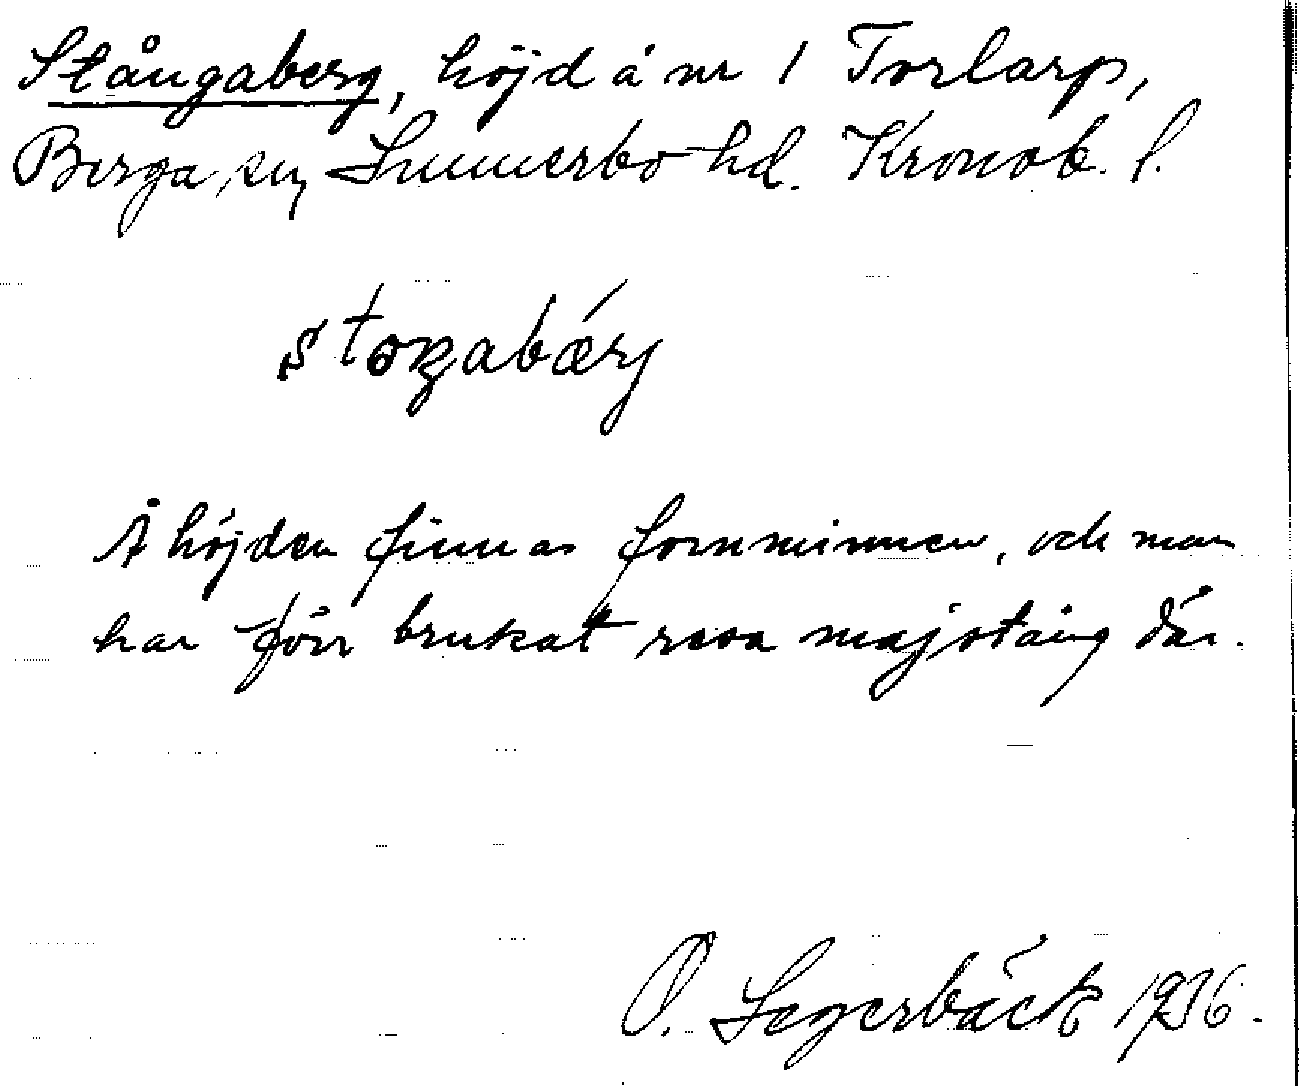 Stångaberg, höjd å nr 1 Torlarp,
Berga sn, Sunnerbo hd. Kronob. l.
stoŋabǽrj
Å höjden finnas fornminnen, och man
har förr brukat resa majstång där.
O. Segerbäck 1936.